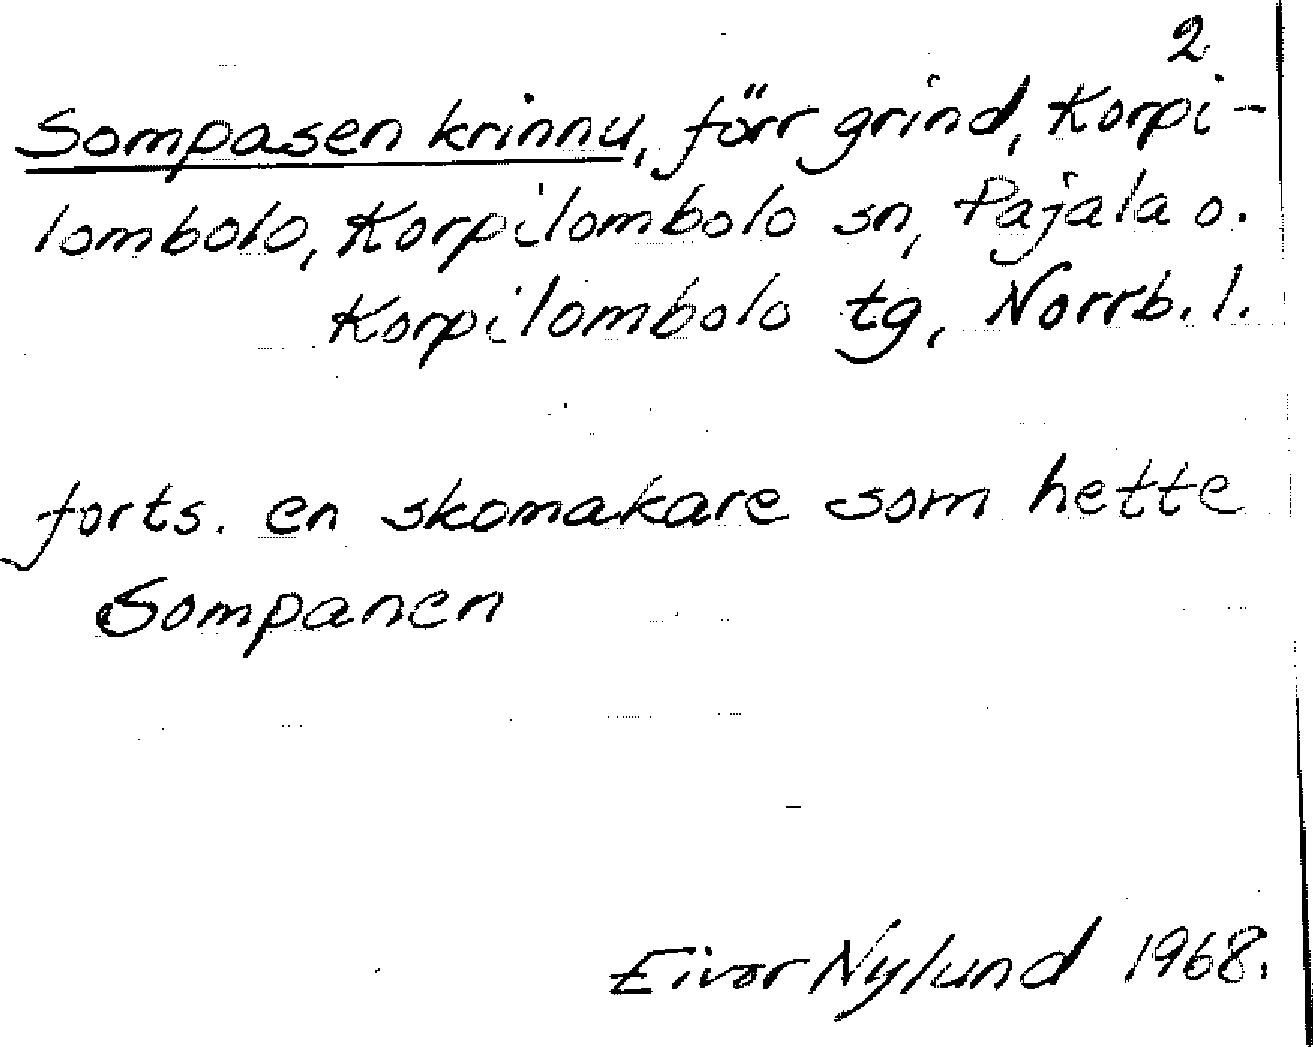 2
Sompasen krinnu, förr grind, Korpi-
lombolo, Korpilombolo sn, Pajala o.
Korpilombolo tg, Norrb. l.
forts. en skomakare som hette
Sompanen
Eivor Nylund 1968.